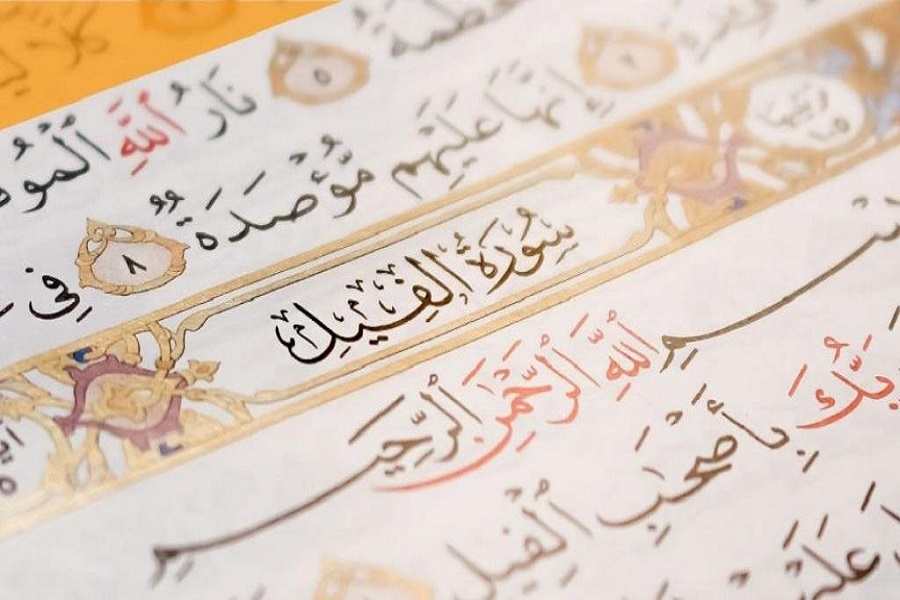 ٥ نَارُ ٱللَّهِ ٱلْمُو
إِنَّهَا عَلَيْهِم مُّؤْصَدَةٌ ٨ فِي
سُورَةُ الْفِيلِ
بِسْمِ ٱللَّهِ ٱلرَّحْمَٰنِ ٱلرَّحِيمِ
رَبُّكَ بِأَصْحَٰبِ ٱلْفِيلِ